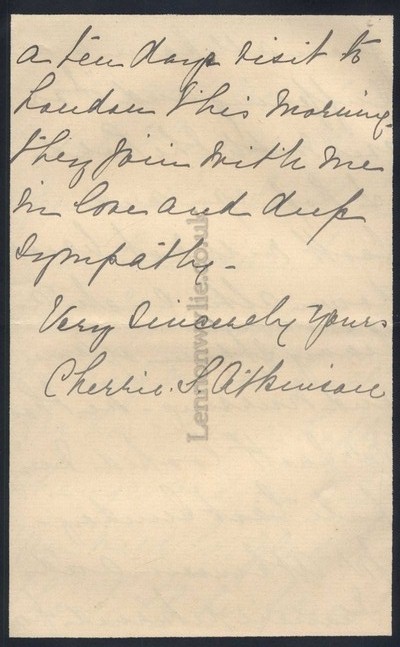 a ten days visit to
London this morning.
They join with me
in love and deep
sympathy -
Very Sincerely Yours
Cherrie. S. Atkinson
Lennonwylie.co.uk